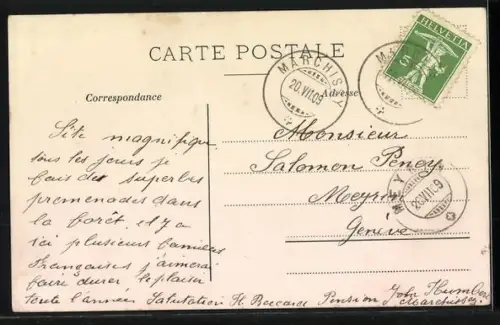 CARTE POSTALE
Correspondance
Adresse
MARCHISSY
20.VII.09
HELVETIA
5
Site magnifique
tous les jours je
fais des superbes
promenades dans
la forêt. il y a
ici plusieurs familles
françaises j'aimerai
faire durer le plaisir
toute l'année Salutation H.
Pension John Humber
Marchissy
Monsieur
Salomon Peney
Meyrin
Genève